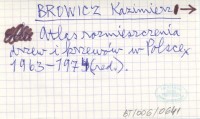 BROWICZ Kazimierz
Atlas rozmieszczenia
drzew i krzewów w Polsce
1963-1974 (red.).
BT/006/0641